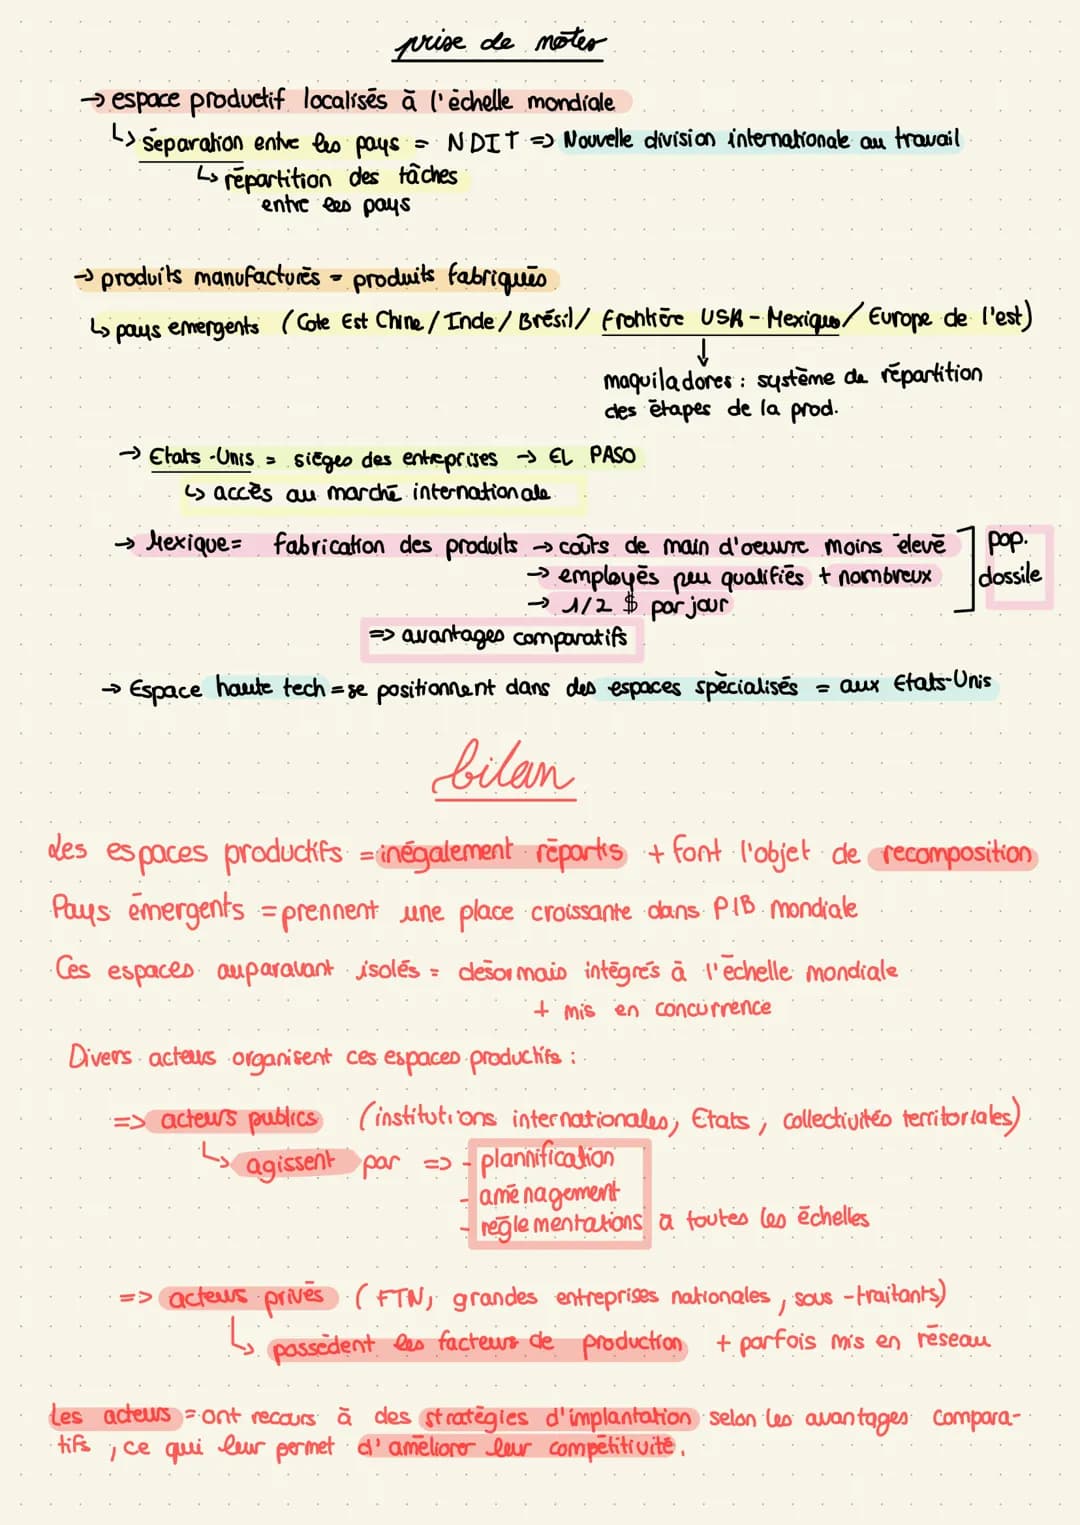 prise de notes
→ espace productif localisés à l'échelle mondiale
↳ séparation entre les pays = NDIT => Nouvelle division internationale au travail
↳ répartition des tâches
entre les pays
→ produits manufacturés = produits fabriqués
↳ pays emergents (Cote Est Chine / Inde / Brésil / frontière USA - Mexique / Europe de l'est)
↓
maquiladores : système de répartition
des étapes de la prod.
→ Etats-Unis = sièges des entreprises → EL PASO
↳ accès au marché internationale
→ Mexique = fabrication des produits → coûts de main d'oeuvre moins élevé
→ employés peu qualifiés + nombreux
→ 1/2 $ par jour
pop.
dossile
=> avantages comparatifs
→ Espace haute tech = se positionnent dans des espaces spécialisés = aux Etats-Unis
bilan
Les espaces productifs = inégalement répartis + font l'objet de recomposition
Pays émergents = prennent une place croissante dans PIB mondiale
Ces espaces auparavant isolés = désormais intégrés à l'échelle mondiale
+ mis en concurrence
Divers acteurs organisent ces espaces productifs :
=> acteurs publics (institutions internationales, Etats, collectivités territoriales)
↳ agissent par => - plannification
- aménagement
- réglementations à toutes les échelles
=> acteurs privés ( FTN, grandes entreprises nationales, sous-traitants)
↳ possèdent les facteurs de production + parfois mis en réseau
Les acteurs = ont recours à des stratégies d'implantation selon les avantages compara-
tifs, ce qui leur permet d'améliorer leur compétitivité.